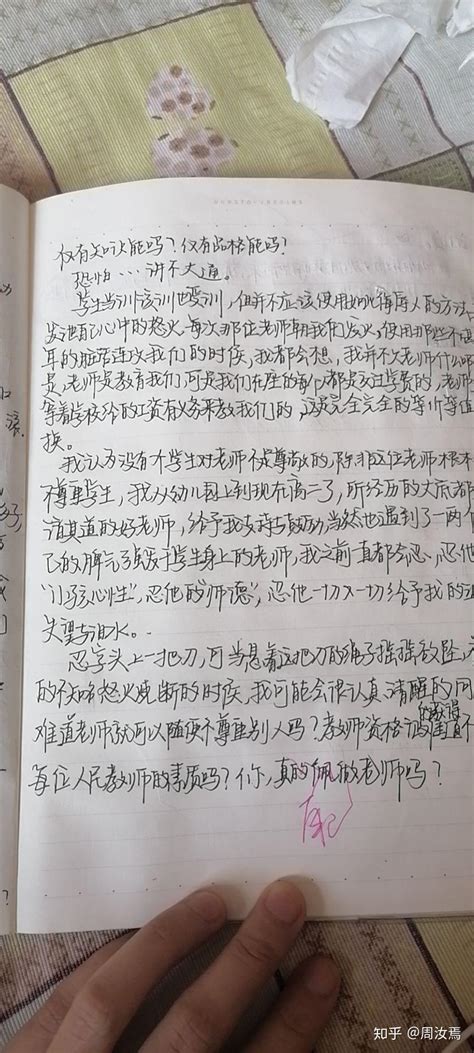 仅有知识能吗？仅有品格能吗！
恐怕…讲不大通。
学生当训该训也要训，但并不应该使用如此侮辱人的方法，
发泄自己心中的怒火，每次那位老师朝我们发火，使用那些不
耳的脏话连攻我们的时候，我都会想，我并不欠老师什么
是，老师是教育我们，可是我们在座的都是交过学费的，老师
等着学校给的工资有义务来教我们的，这是完全完全的等价等值
换。
我认为没有个学生对老师不是尊敬的，除非这位老师根本
不尊重学生，我从幼儿园上到现在高二了，所经历的大底都
该其道的好老师，给予我支持与鼓励，当然也遇到了一两个
己的脾气强发于学生身上的老师，我之前一直都会忍，忍他
“小孩心性”，忍他的“师德”，忍他一切一切给予我的
失望与泪水。
忍字头上一把刀，可当悬着这把刀的绳子摇摇欲坠，
的不啥怒火烧断的时候，我可能会很认真清醒的问
难道老师就可以随便不尊重别人吗？教师资格证
每位人民教师的素质吗？你，真的佩做老师吗？
配
知乎 @周汝焉